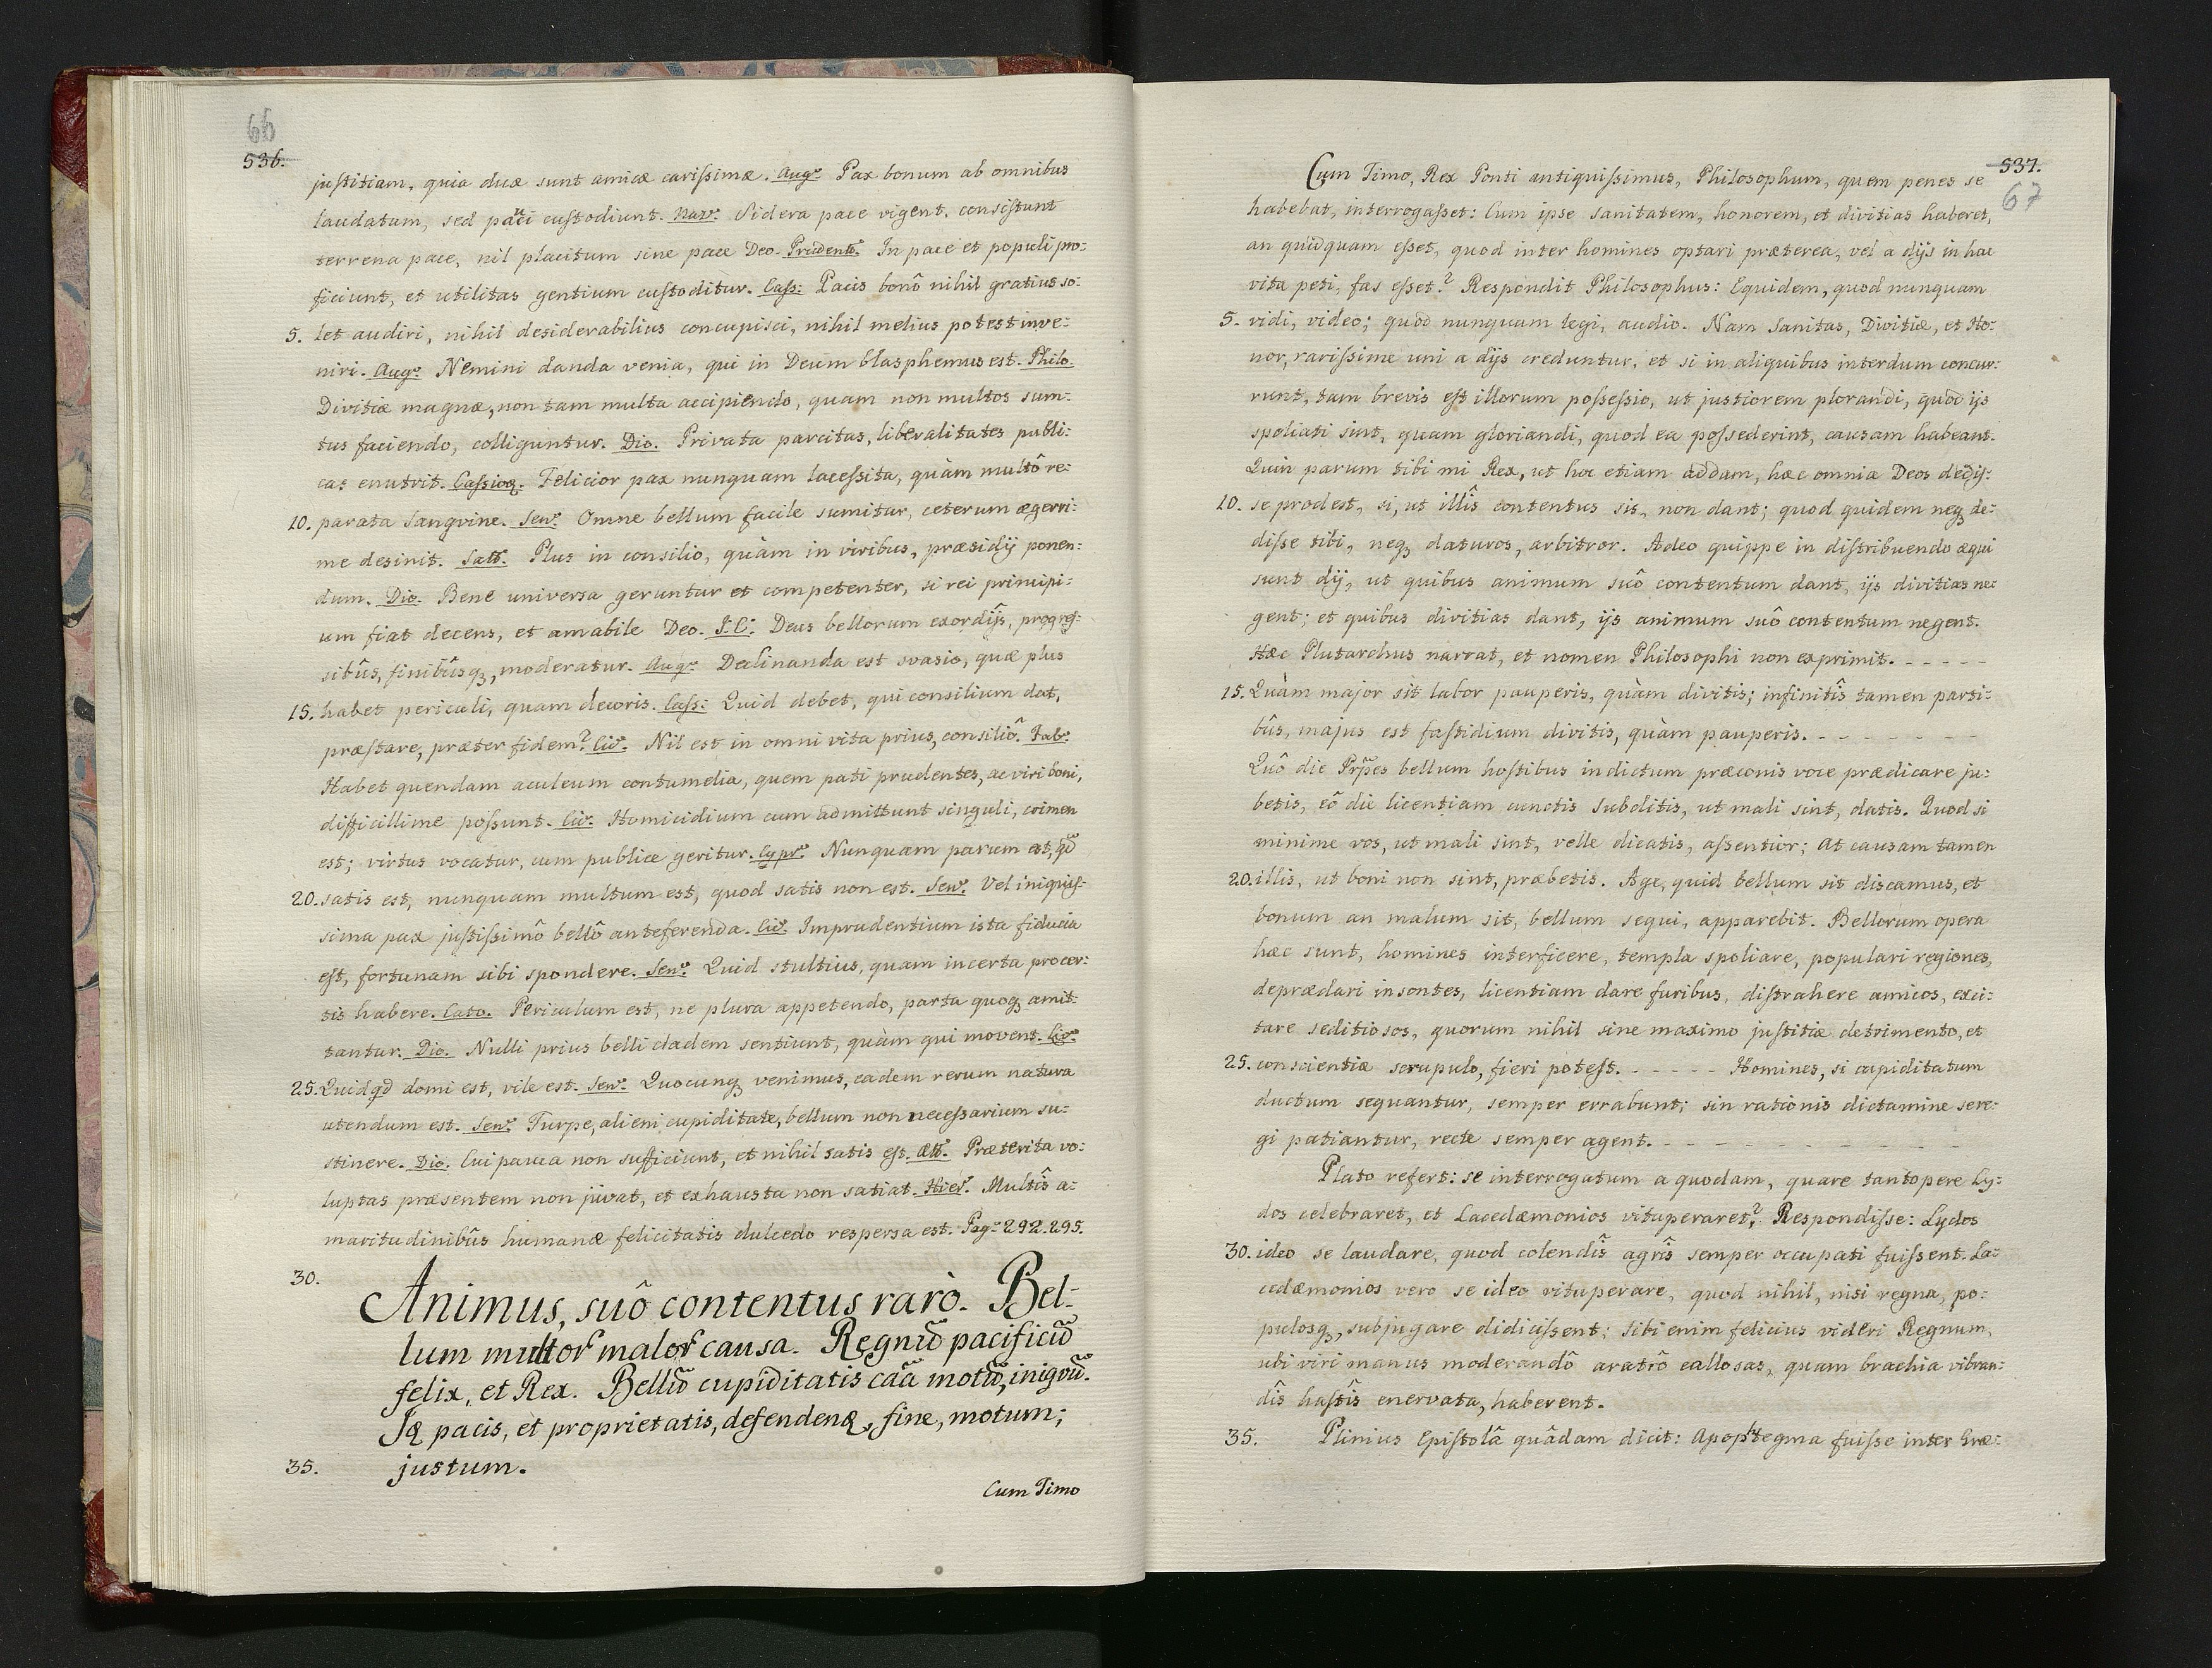 66
536.
justitiam, quia duæ sunt amicæ carissimæ. Augs. Pax bonum ab omnibus
laudatum, sed pauci custodiunt. Nar. Sidera pace vigent, consistunt
terrena pace, nil placitum sine pace Deo. Prudents. In pace et populi pro:
ficiunt, et utilitas gentium custoditur. Cass: Pacis bonô nihil gratius so:
5. let audiri, nihil desiderabilius concupisci, nihil melius potest inve:
niri. Augs. Nemini danda venia, qui in Deum blasphemus est. Philo.
Divitiæ magnæ, non tam multa accipiendo, quam non multos sum:
tus faciendo, colliguntur. Dio. Privata parcitas, liberalitates publi:
cas enutrit. Cassioq. Felicior pax nunquam lacessita, quàm multô re:
10. parata sangvine. Sens. Omne bellum facile sumitur, ceterum ægerri:
me desinit. Sall. Plus in consilio, quàm in viribus, præsidij ponen:
dum. Dio. Bene universa geruntur et competenter, si rei principi:
um fiat decens, et amabile Deo. I. C. Deus bellorum exordijs, progres:
sibûs, finibûsq, moderatur. Augs. Declinanda est svasio, quæ plus
15. habet periculi, quam decoris. Cass: Quid debet, qui consilium dat,
præstare, præter fidem? Cic. Nil est in omni vita prius, consiliô. Fab.
Habet quendam aculeum contumelia, quem pati prudentes, ac viri boni,
difficillime possunt. Cic. Homicidium cum admittunt singuli, crimen
est; virtus vocatur, cum publice geritur. Cypr. Nunquam parum est, qd
20. satis est, nunquam multum est, quod satis non est. Sens. Vel iniquis:
sima pax justissimô bellô anteferenda. Cic. Imprudentium ista fiducia
est, fortunam sibi spondere. Sens. Quid stultius, quam incerta pro cer:
tis habere. Cato. Periculum est, ne plura appetendo, parta quoq amit:
tantur. Dio. Nulli prius belli cladem sentiunt, quàm qui movent. Cic.
25. Quidqd domi est, vile est. Sens. Quocunq venimus, eadem rerum natura
utendum est. Sens. Turpe, alieni cupiditate, bellum non necessarium su:
stinere. Dio. Cui pauca non sufficiunt, et nihil satis est. Æll. Præterita vo:
luptas præsentem non juvat, et exhausta non satiat. Hier. Multîs a:
maritudinibûs humanæ felicitatis dulcedo respersa est. Pag. 292. 295.
30.
Animus, suô contentus rarò. Bel:
lum multor malor causa. Regnu pacificu
felix, et Rex. Bellu cupiditatis caa motu, iniqvu.
Iq pacis, et proprietatis, defendenæ, fine, motum;
35. justum.
Cum Timo
537.
67
Cum Timo, Rex Ponti antiquissimus, Philosophum, quem penes se
habebat, interrogasset: Cum ipse sanitatem, honorem, et divitias haberet,
an quidquam esset, quod inter homines optari præterea, vel a dijs in hac
vita peti, fas esset? Respondit Philosophus: Equidem, quod nunquam
5. vidi, video; quod nunquam legi, audio. Nam Sanitas, Divitiæ, et Ho:
nor, rarissime uni a dijs creduntur, et si in aliquibus interdum concur:
runt, tam brevis est illorum possessio, ut justiorem plorandi, quod ijs
spoliati sint, quam gloriandi, quod ea possederint, causam habeant.
Quin parum tibi mi Rex, ut hoc etiam addam, hæc omnia Deos dedis:
10. se prodest, si, ut illîs contentus sis, non dant; quod quidem neq de:
disse tibi, neq daturos, arbitror. Adeo quippe in distribuendo æqui
sunt dij, ut quibus animum suô contentum dant, ijs divitias ne:
gent; et quibus divitias dant, ijs animum suô contentum negent.
Hæc Plutarchus narrat, et nomen Philosophi non exprimit. - - - - -
15. Quàm major sit labor pauperis, quàm divitis; infinitîs tamen parti:
bûs, majus est fastidium divitis, quàm pauperis. - - - - - - -
Quô die Prpes bellum hostibus indictum præconis voce prædicare ju:
betis, eô die licentiam cunctis subditis, ut mali sint, datis. Quod si
minime vos, ut mali sint, velle dicatis, assentior; At causam tamen
20. illis, ut boni non sint, præbetis. Age, quid bellum sit discamus, et
bonum an malum sit, bellum sequi, apparebit. Bellorum opera
hæc sunt, homines interficere, templa spoliare, populari regiones,
deprædari insontes, licentiam dare furibus, distrahere amicos, exci:
tare seditiosos, quorum nihil sine maximo justitiæ detrimento, et
25. conscientiæ scrupulo, fieri potest. - - - - - Homines, si cupiditatum
ductum sequantur, semper errabunt; sin rationis dictamine se re:
gi patiantur, recte semper agent. - - - - - - - - - -
Plato refert: se interrogatum a quodam, quare tantopere Ly:
dos celebraret, et Lacedæmonios vituperaret? Respondisse: Lydos
30. ideo se laudare, quod colendîs agrîs semper occupati fuissent. La:
cedæmonios vero se ideo vituperare, quod nihil, nisi regna, po:
pulosq, subjugare didicissent; Sibi enim felicius videri Regnum,
ubi viri manus moderandô aratrô callosas, quam brachia vibran:
dîs hastîs enervata, haberent.
35. Plinius Epistolâ quâdam dicit: Apophtegma fuisse inter Græ: